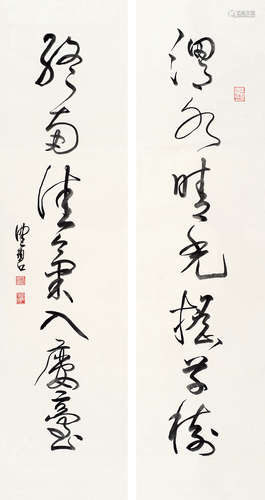 渭水晴光摇草树
终南佳气入楼台